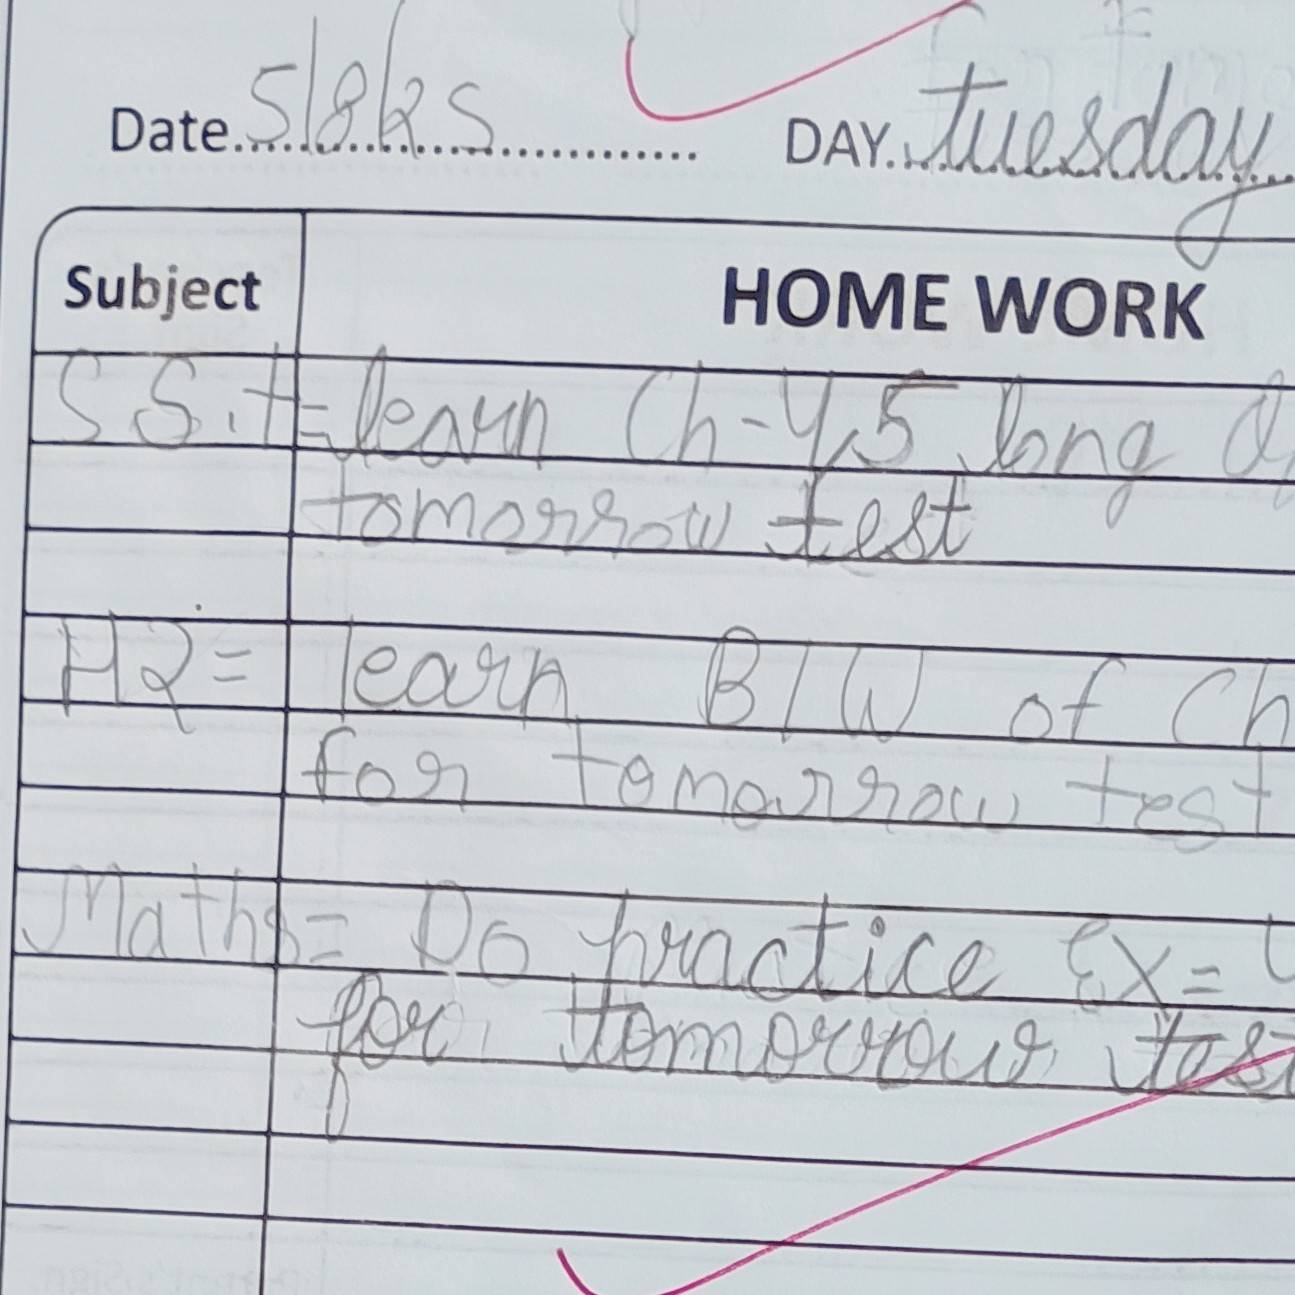 Date 5/8/25 DAY. Tuesday
Subject HOME WORK
S S.t= learn Ch-4,5 long
tomorrow test
H2= learn B/W of Ch
for tomorrow test
Maths= Do practice Ex=
for tomorrow test